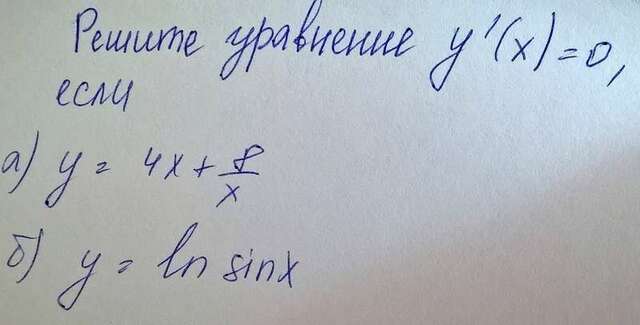 Решите уравнение y'(x)=0,
если
а) y = 4x + 8/x
б) y = ln sinx